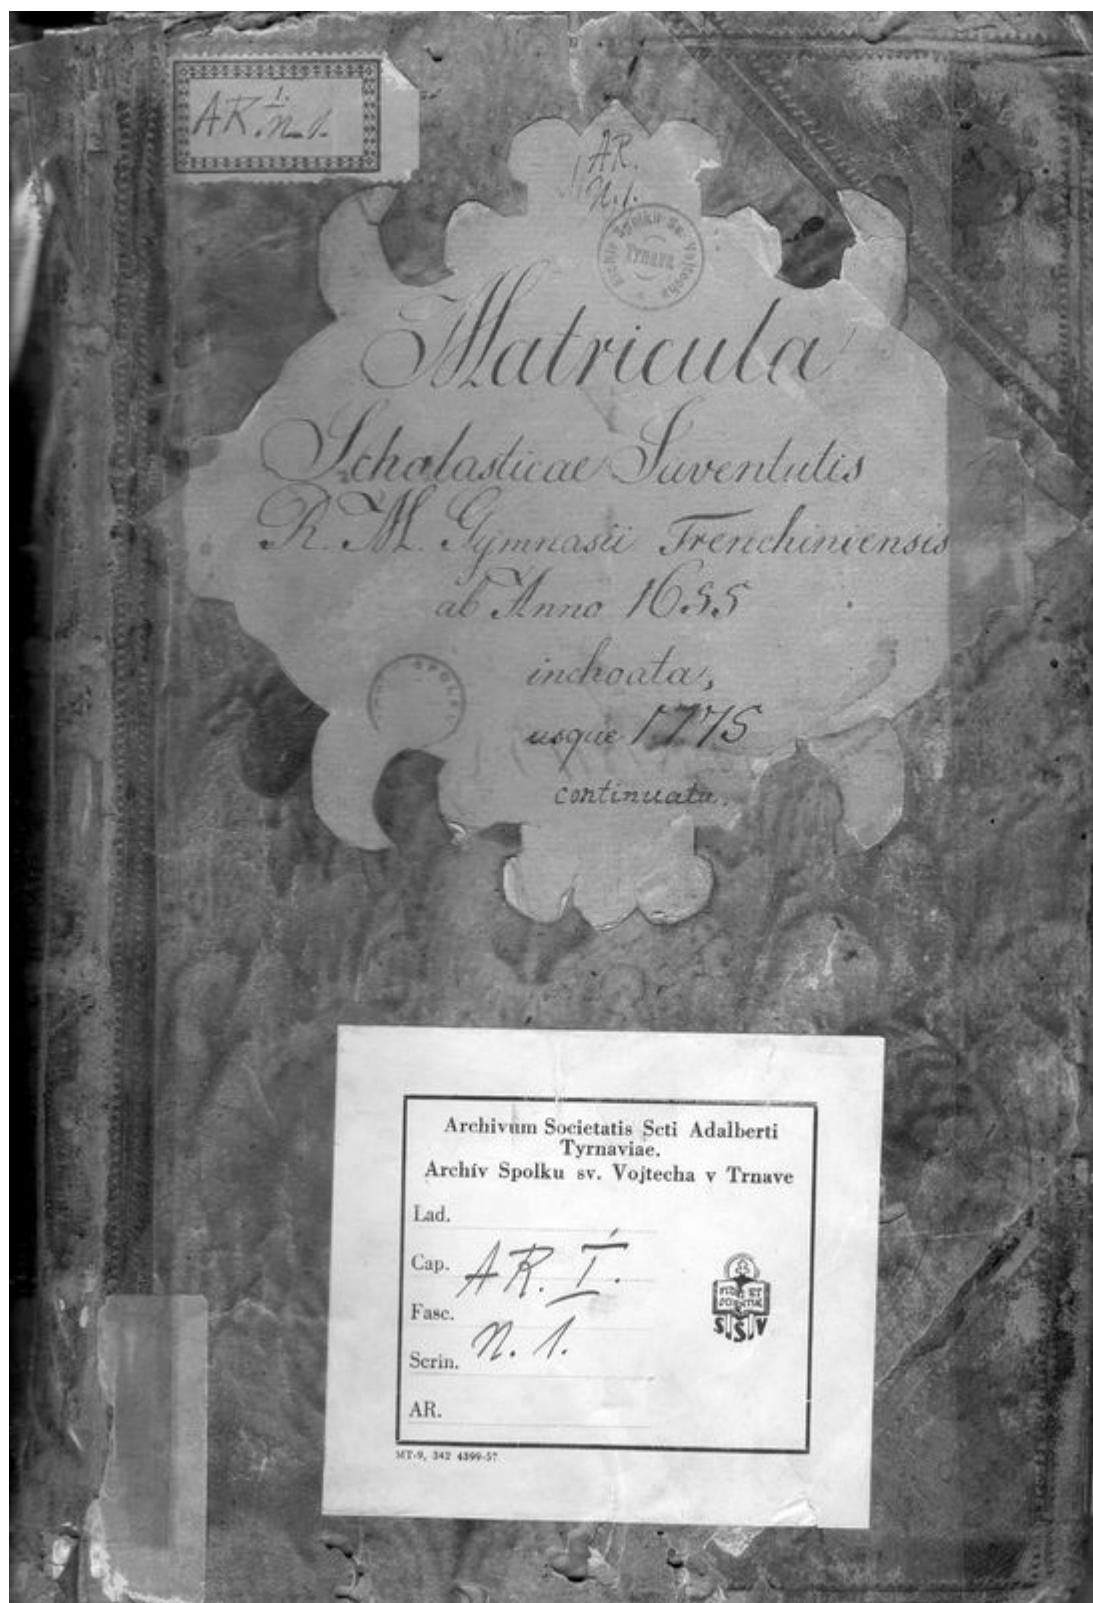 AR. I. n. 1.
AR.
N. 1.
Archív Spolku Sv. Vojtecha
Tyrnava
Matricula
Scholasticae Juventutis
R. M. Gymnasii Trenchiniensis
ab Anno 1655
inchoata,
usque 1775
continuata.
SPOLK
Archivum Societatis Scti Adalberti
Tyrnaviae.
Archív Spolku sv. Vojtecha v Trnave
Lad.
Cap. AR. I.
Fasc.
Scrin. n. 1.
AR.
FIDES ET
SCIENTIA
SSV
MT-9, 342 4399-57